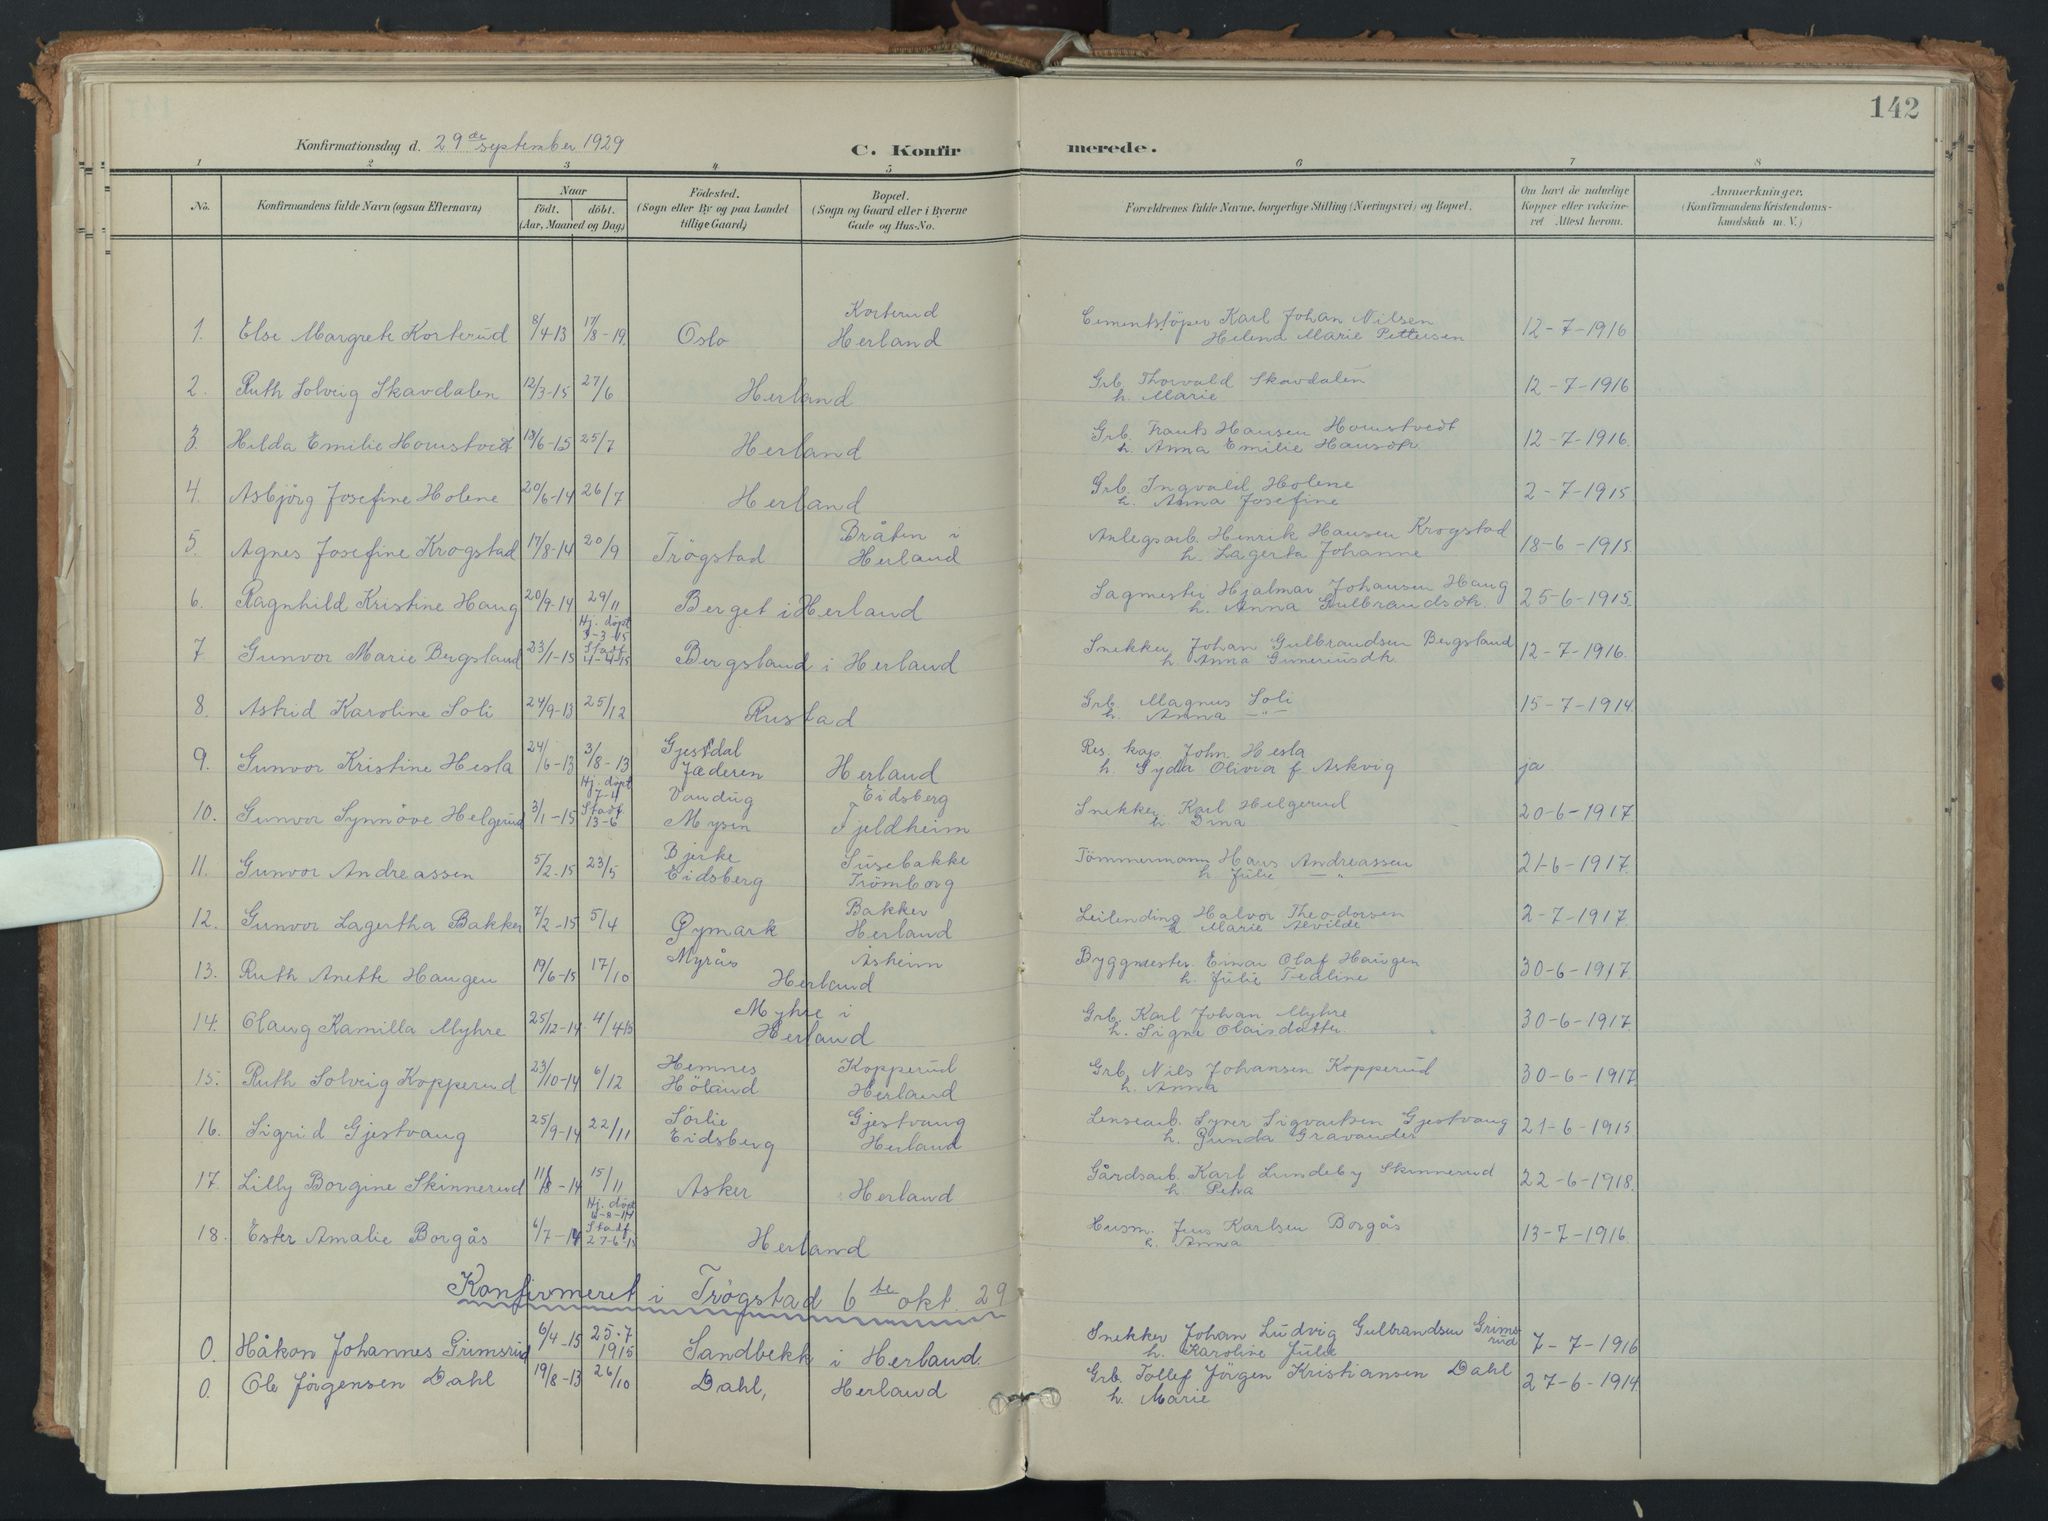 142
Konfirmationsdag d. 29de september 1929
C. Konfir merede.
1 2 3 4 5 6 7 8
No. Konfirmandens fulde Navn (ogsaa Efternavn) Naar födt. döbt. (Aar, Maaned og Dag) Födested. (Sogn eller By og paa Landet tillige Gaard) Bopæl. (Sogn og Gaard eller i Byerne Gade og Hus-No. Forældrenes fulde Navne, borgerlige Stilling (Næringsvei) og Bopæl. Om havt de naturlige Kopper eller vakcineret Attest herom. Anmærkninger. (Konfirmandens Kristendomskundskab m. V.)
Korterud
1. Else Margrete Korterud 8/4-13 17/8-19. Oslo Herland Cementstöper Karl Johan Nilsen 12-7-1916
Helena Marie Pettersen
2. Ruth Solveig Skavdalen 12/3-15 27/6 Herland Grb. Thorvald Skavdalen 12-7-1916
h. Marie
3. Hilda Emilie Homstvedt 18/6-15 25/7 Herland Grb. Frants Hansen Homstvedt 12-7-1916.
h. Anna Emilie Hansdtr.
4. Asbjörg Josefine Holene 20/6-14 26/7 Herland Grb. Ingvald Holene 2-7-1915
h. Anna Josefine
Bråten i
5. Agnes Josefine Krogstad 17/8-14 20/9 Trögstad Herland Anlegsarb. Henrik Hansen Krogstad 18-6-1915
h. Lagerta Johanne
6. Ragnhild Kristine Haug 20/9-14 29/11 Berget i Herland Sagmester Hjalmar Johansen Haug 25-6-1915.
h. Anna Gulbrandsdtr.
Hj. döpt
3-3-15
7. Gunvor Marie Bergsland 23/1-15 Stadf. 4-4-15 Bergsland i Herland Snekker Johan Gulbrandsen Bergsland 12-7-1916.
h. Anna Gunneriusdtr
8. Astrid Karoline Soli 24/9-13 25/12 Rustad Grb. Magnus Soli 15-7-1914
h. Anna —"—
Gjestdal
9. Gunvor Kristine Hesla 24/6-13 3/8-13 Jæderen Herland Res. kap. John Hesla ja
h. Gyda Olivia f Askvig
Hj. döpt
7-4
Eidsberg
10. Gunvor Synnöve Helgerud 3/1-15 Stadf. 13-6 Mysen Fjeldheim Snekker Karl Helgerud 20-6-1917
h. Dina
Bjerke Susebakke
11. Gunvor Andreassen 5/2-15 23/5 Eidsberg Trömborg Tömmermann Hans Andreassen 21-6-1917.
h. Julie —"—
Bakker
12. Gunvor Lagertha Bakker 7/2-15 5/4 Øymark Herland Leilending Halvor Theodorsen 2-7-1917.
h. Marie Alvilde
Myrås Åsheim
13. Ruth Anette Haugen 19/6-15 17/10 Herland Byggmester Einar Olaf Haugen 30-6-1917.
h. Julie Tealine
Myhre i
14. Olaug Kamilla Myhre 25/12-14 4/4 15 Herland Grb. Karl Johan Myhre 30-6-1917.
h. Signe Olaisdatter.
Hemnes Kopperud
15. Ruth Solveig Kopperud 23/10-14 6/12 Höland Herland Grb. Nils Johansen Kopperud 30-6-1917
h. Anna
Sørlie Gjestvang
16. Sigrid Gjestvang 25/9-14 22/11 Eidsberg Herland Lensearb. Syver Sigvartsen Gjestvang 21-6-1915
h. Gunda Gravander
17. Lilly Borgine Skinnerud 11/8-14 15/11 Asker Herland Gårdsarb. Karl Lundeby Skinnerud 22-6-1918.
h. Petra
Hj. döpt
6-8-14
18. Ester Amalie Borgås 6/7-14 Stadf. 27-6-15 Herland Husm. Jens Karlsen Borgås 13-7-1916.
h. Anna
Konfirmeret i Trögstad 6te okt. 29
0. Håkon Johannes Grimsrud 6/4-15 25-7 1915 Sandbekk i Herland. Snekker Johan Ludvig Gulbrandsen Grimsrud 7-7-1916
h. Karoline Julie
0. Ole Jörgensen Dahl 19/8-13 26/10 Dahl, Herland Grb. Tollef Jörgen Kristiansen Dahl 27-6-1914.
h. Marie